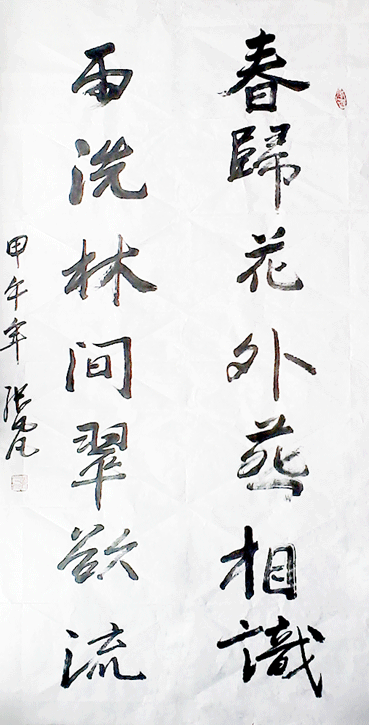 春歸花外燕相識
雨洗林间翠欲流
甲午年 张